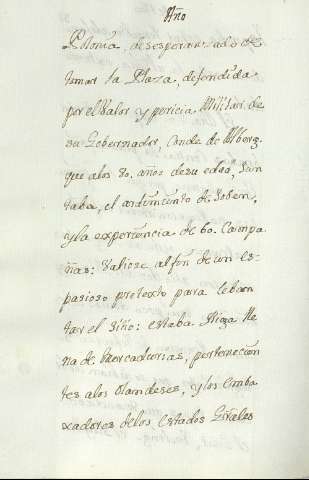 Año
Polonia, desesperanzado de
tomar la Plaza, defendida
por el Valor y pericia Militar de
su Gobernador, Conde de Alberg,
que alos 80. años desu edad, Jun
taba, el ardimiento de Joben,
y la experiencia de 60. Campa
ñas: Valiose alfin de un es-
pacioso pretexto para leban
tar el Sitio: estaba Riga lle
na de mercadurias, pertenecien
tes alos Olandeses, y los Emba
xadores delos Estados Gñales